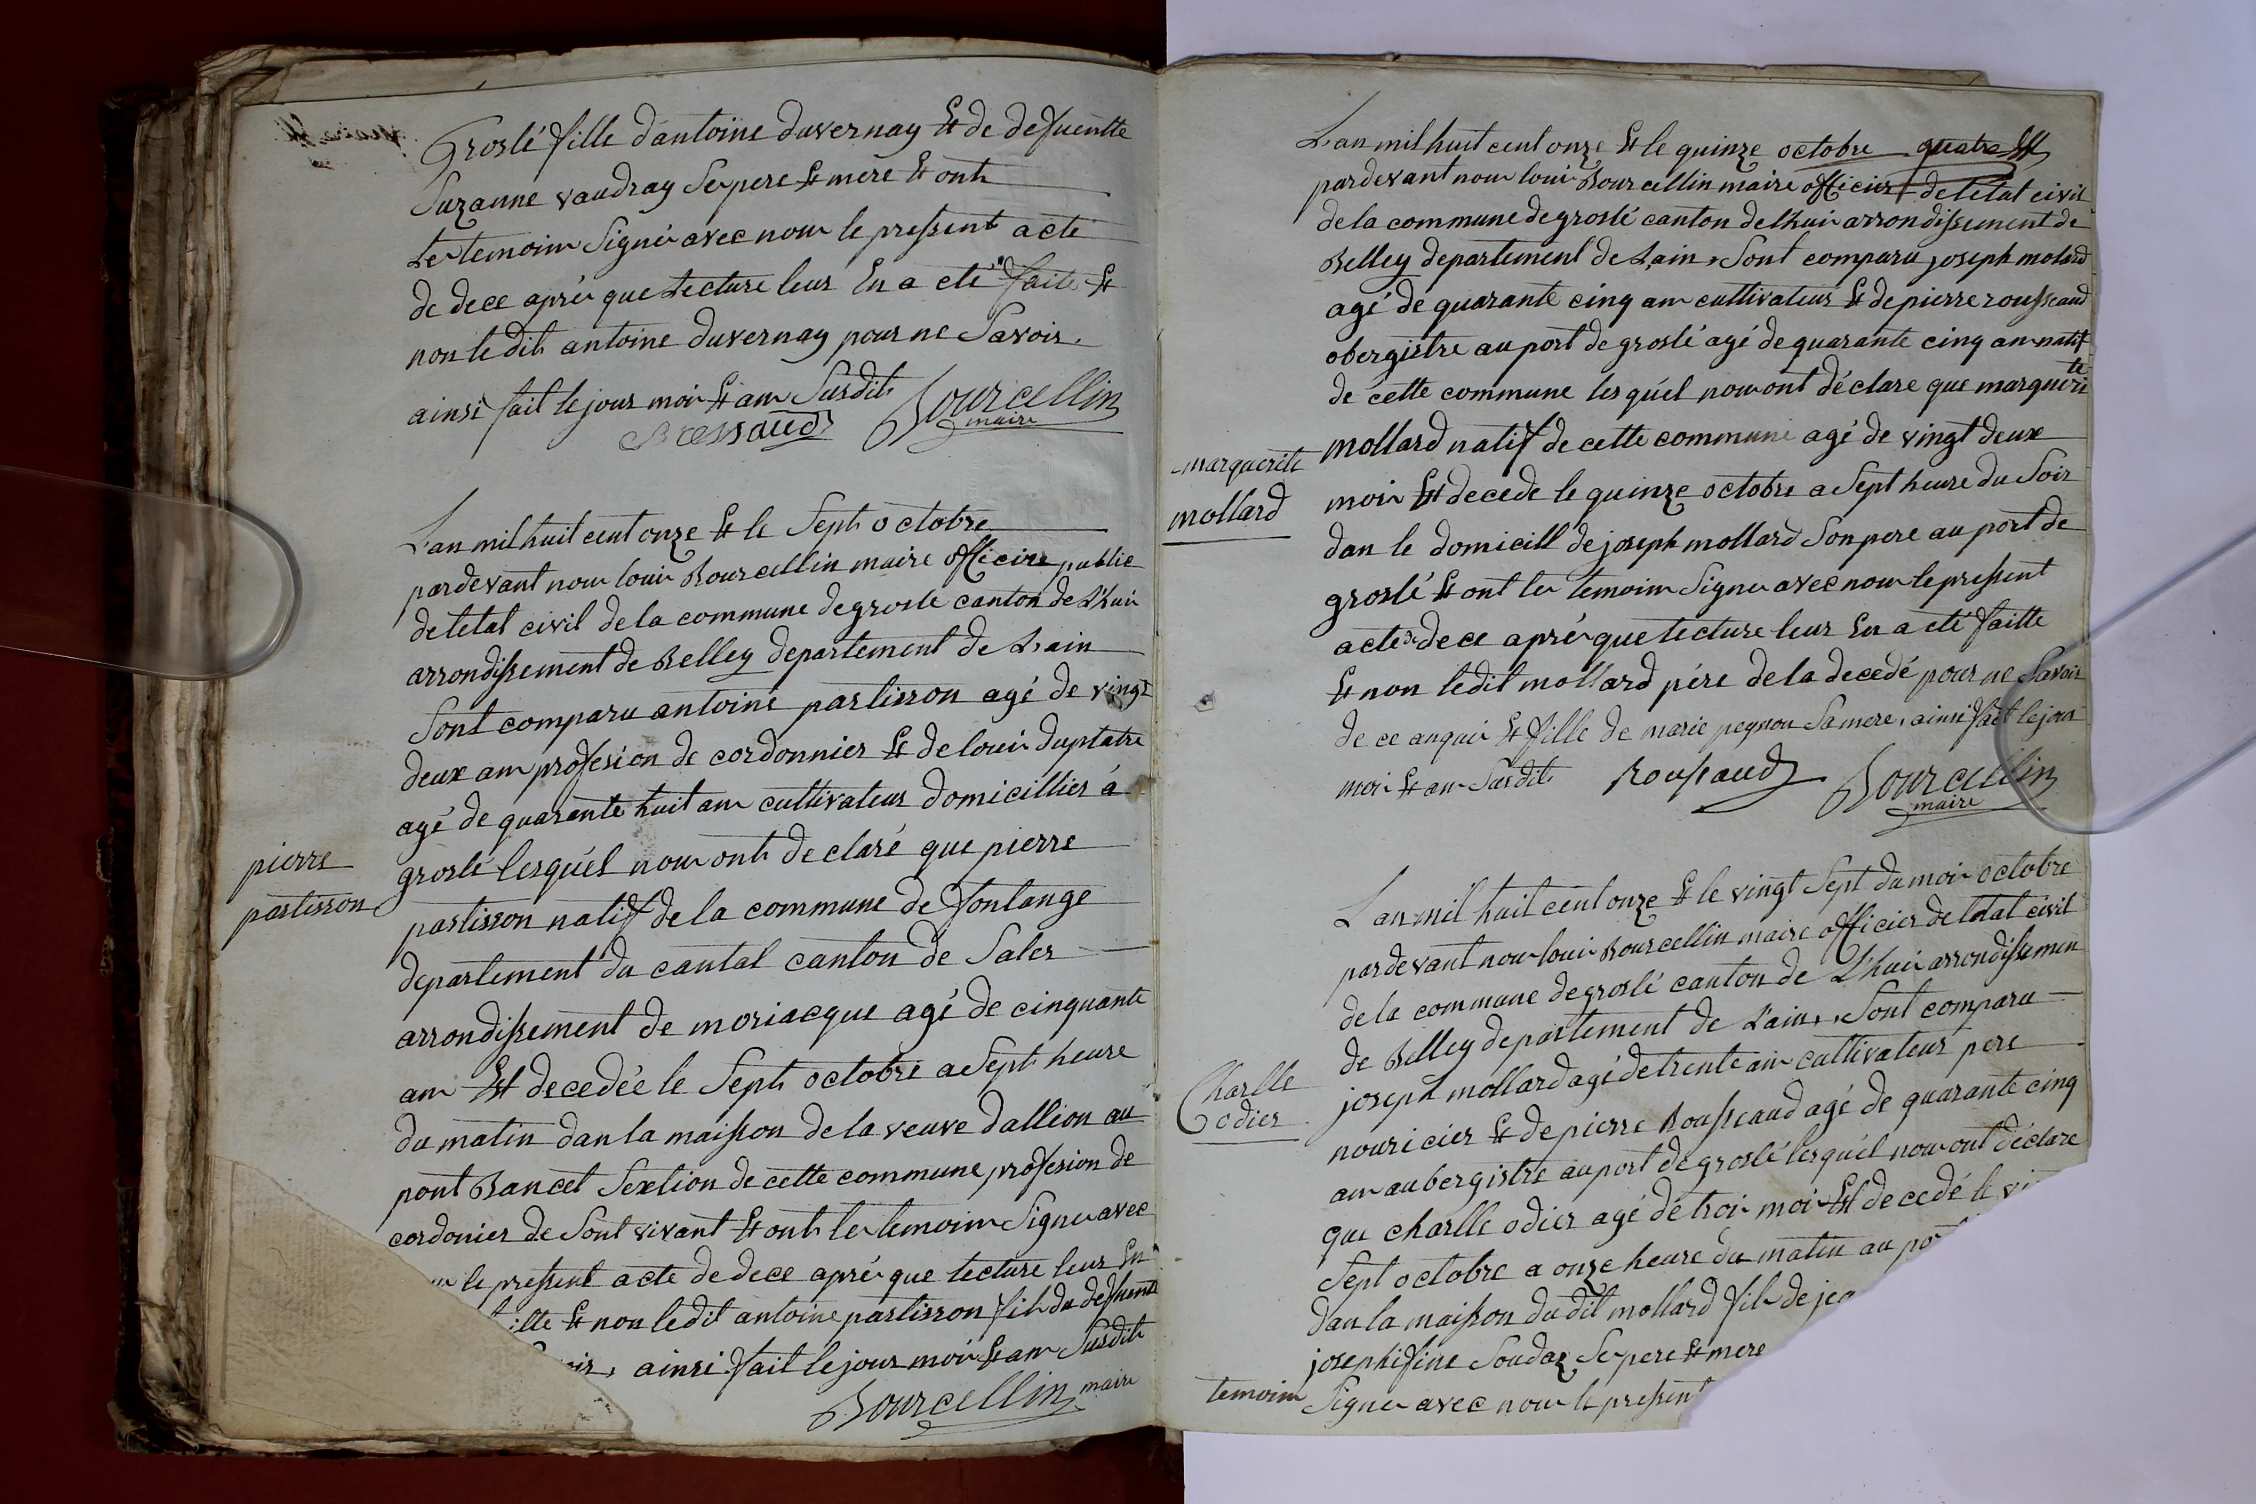 Groslé fille dantoine duvernay Et de defuentte
Suzanne vaudray Se pere Et mere Et ont
Le temoin Signé avec nou le pressent acte
de dece aprè que Lecture leur En a eté faite Et
non le dit antoine duvernay pour ne Savoir.
ainsi fait le jour moi Et an Susdit Bourcellin
maire
L'an mil huit cent onze Et le Sept octobre
pardevant nou loui Bourcellin maire officire public
de letat civil de la commune de grosle canton de L'hui
arrondissement de Belley departement de Lain
Sont comparu antoine partisson agé de vingt
deux an profesion de cordonnier Et de loui duplatre
agé de quarante huit an cultivateur domicillier á
groslé lesquél nou ont declaré que pierre
pierre
partisson
partisson natif de la commune de fontange
departement du cantal canton de Saler
arrondissement de moriacque agé de cinquante
an Est decedée le Sept octobre a Sept heure
du matin dan la maisson de la veuve dallion au
pont Bancet Sextion de cette commune profesion de
cordonier de Sont vivant Et ont le temoin Signe avec
le pressent acte de dece aprè que lecture leur En
Et non le dit antoine partisson fils du defuent
ainsi fait le jour moi Et an Susdit
Bourcellin maire
L'an mil huit cent onze Et le quinze octobre quatre
pardevant nou loui Bourcellin maire officier de letat civil
de la commune de groslé canton de lhui arrondissement de
Belley departement de Lain, Sont comparu joseph molard
agé de quarante cinq an cultivateur Et de pierre rousseaud
obergistre au port de groslé agé de quarante cinq an natif
de cette commune lesquél nou ont déclare que marguerite
marguerite
mollard
mollard natif de cette commune agé de vingt deux
moi Est decede le quinze octobre a Sept heure du Soir
dan le domicill de joseph mollard Son pere au port de
groslé Et ont le temoin Signe avec nou le pressent
acte de dece aprè que lecture leur En a eté faitte
Et non ledit mollard pére de la decedé pour ne Savoir
de ce anquì Et fille de marie peynou Sa mere, ainsi fait le jour
moi Et an Susdit Roussaud Bourcellin
maire
L'an mil huit cent onze Et le vingt Sept du moi octobre
pardevant nou loui Bourcellin maire officier de letat civil
de la commune de groslé canton de L'hui arrondissemen
de Belley departement de Lain, Sont comparu
Charlle
odier
joseph mollard agé de trente an cultivateur pere
nouricier Et de pierre Rousseaud agé de quarante cinq
an aubergistre au port de groslé lesquél nou ont déclare
que charlle odier agé de troi moi Est decedé le
Sept octobre a onze heure du matin au
dan la maisson du dit mollard fil de
josephifine Soudaz Se pere Et mere
temoin Signe avec nou le pressent